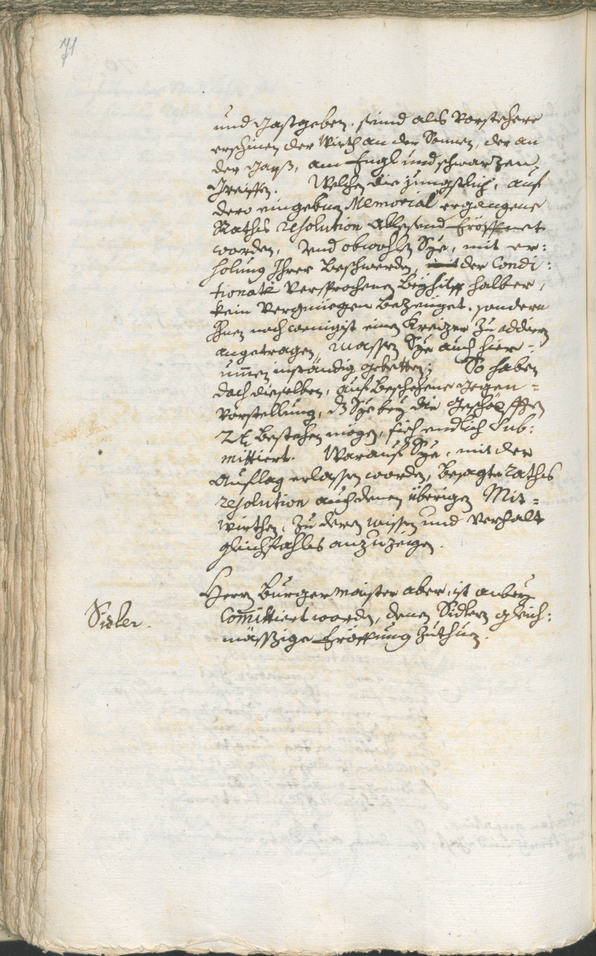 71
und Gastgeben. seind als Vorstehere
erschinen der Würth an der Sonnen, der an
der Gayß, am Engl und schwarzen
Greiffen. Welchen die jüngstlich, auf
dero eingebnes Memorial ergangene
Rathsresolution allesend eröffnet
worden, und obwohlen Sye, mit er-
holung Ihrer Beschwerden, der Condi-
tionate versprochenen Beyhilff halber,
kein Vergnüegen bezeiget, sondern
Ihnen noch wenigist einen Kreizer zu addiern
angetragen, massen Sye auch hier-
umen inständig gebetten; So haben
doch dieselben, auf beschehene gegen-
Vorstellung, dz Sye bey die
bestehen mögen, sich endlich sub-
mittiert. Warauf Sye, mit der
Auflag erlassen worden, besagte Raths
resolution auch denen übrigen Mit-
würthen, zu deren wissen und verhalt
gleichfahls anzuzeigen.
Sidler.
Herrn Burgermaister aber, ist anbey
Committiert worden, denen Sidlern gleich-
mässige Eröffnung zuthun.